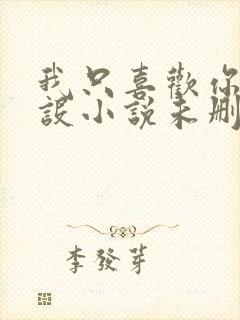 我只喜歡你
設小說未刪
李發芽